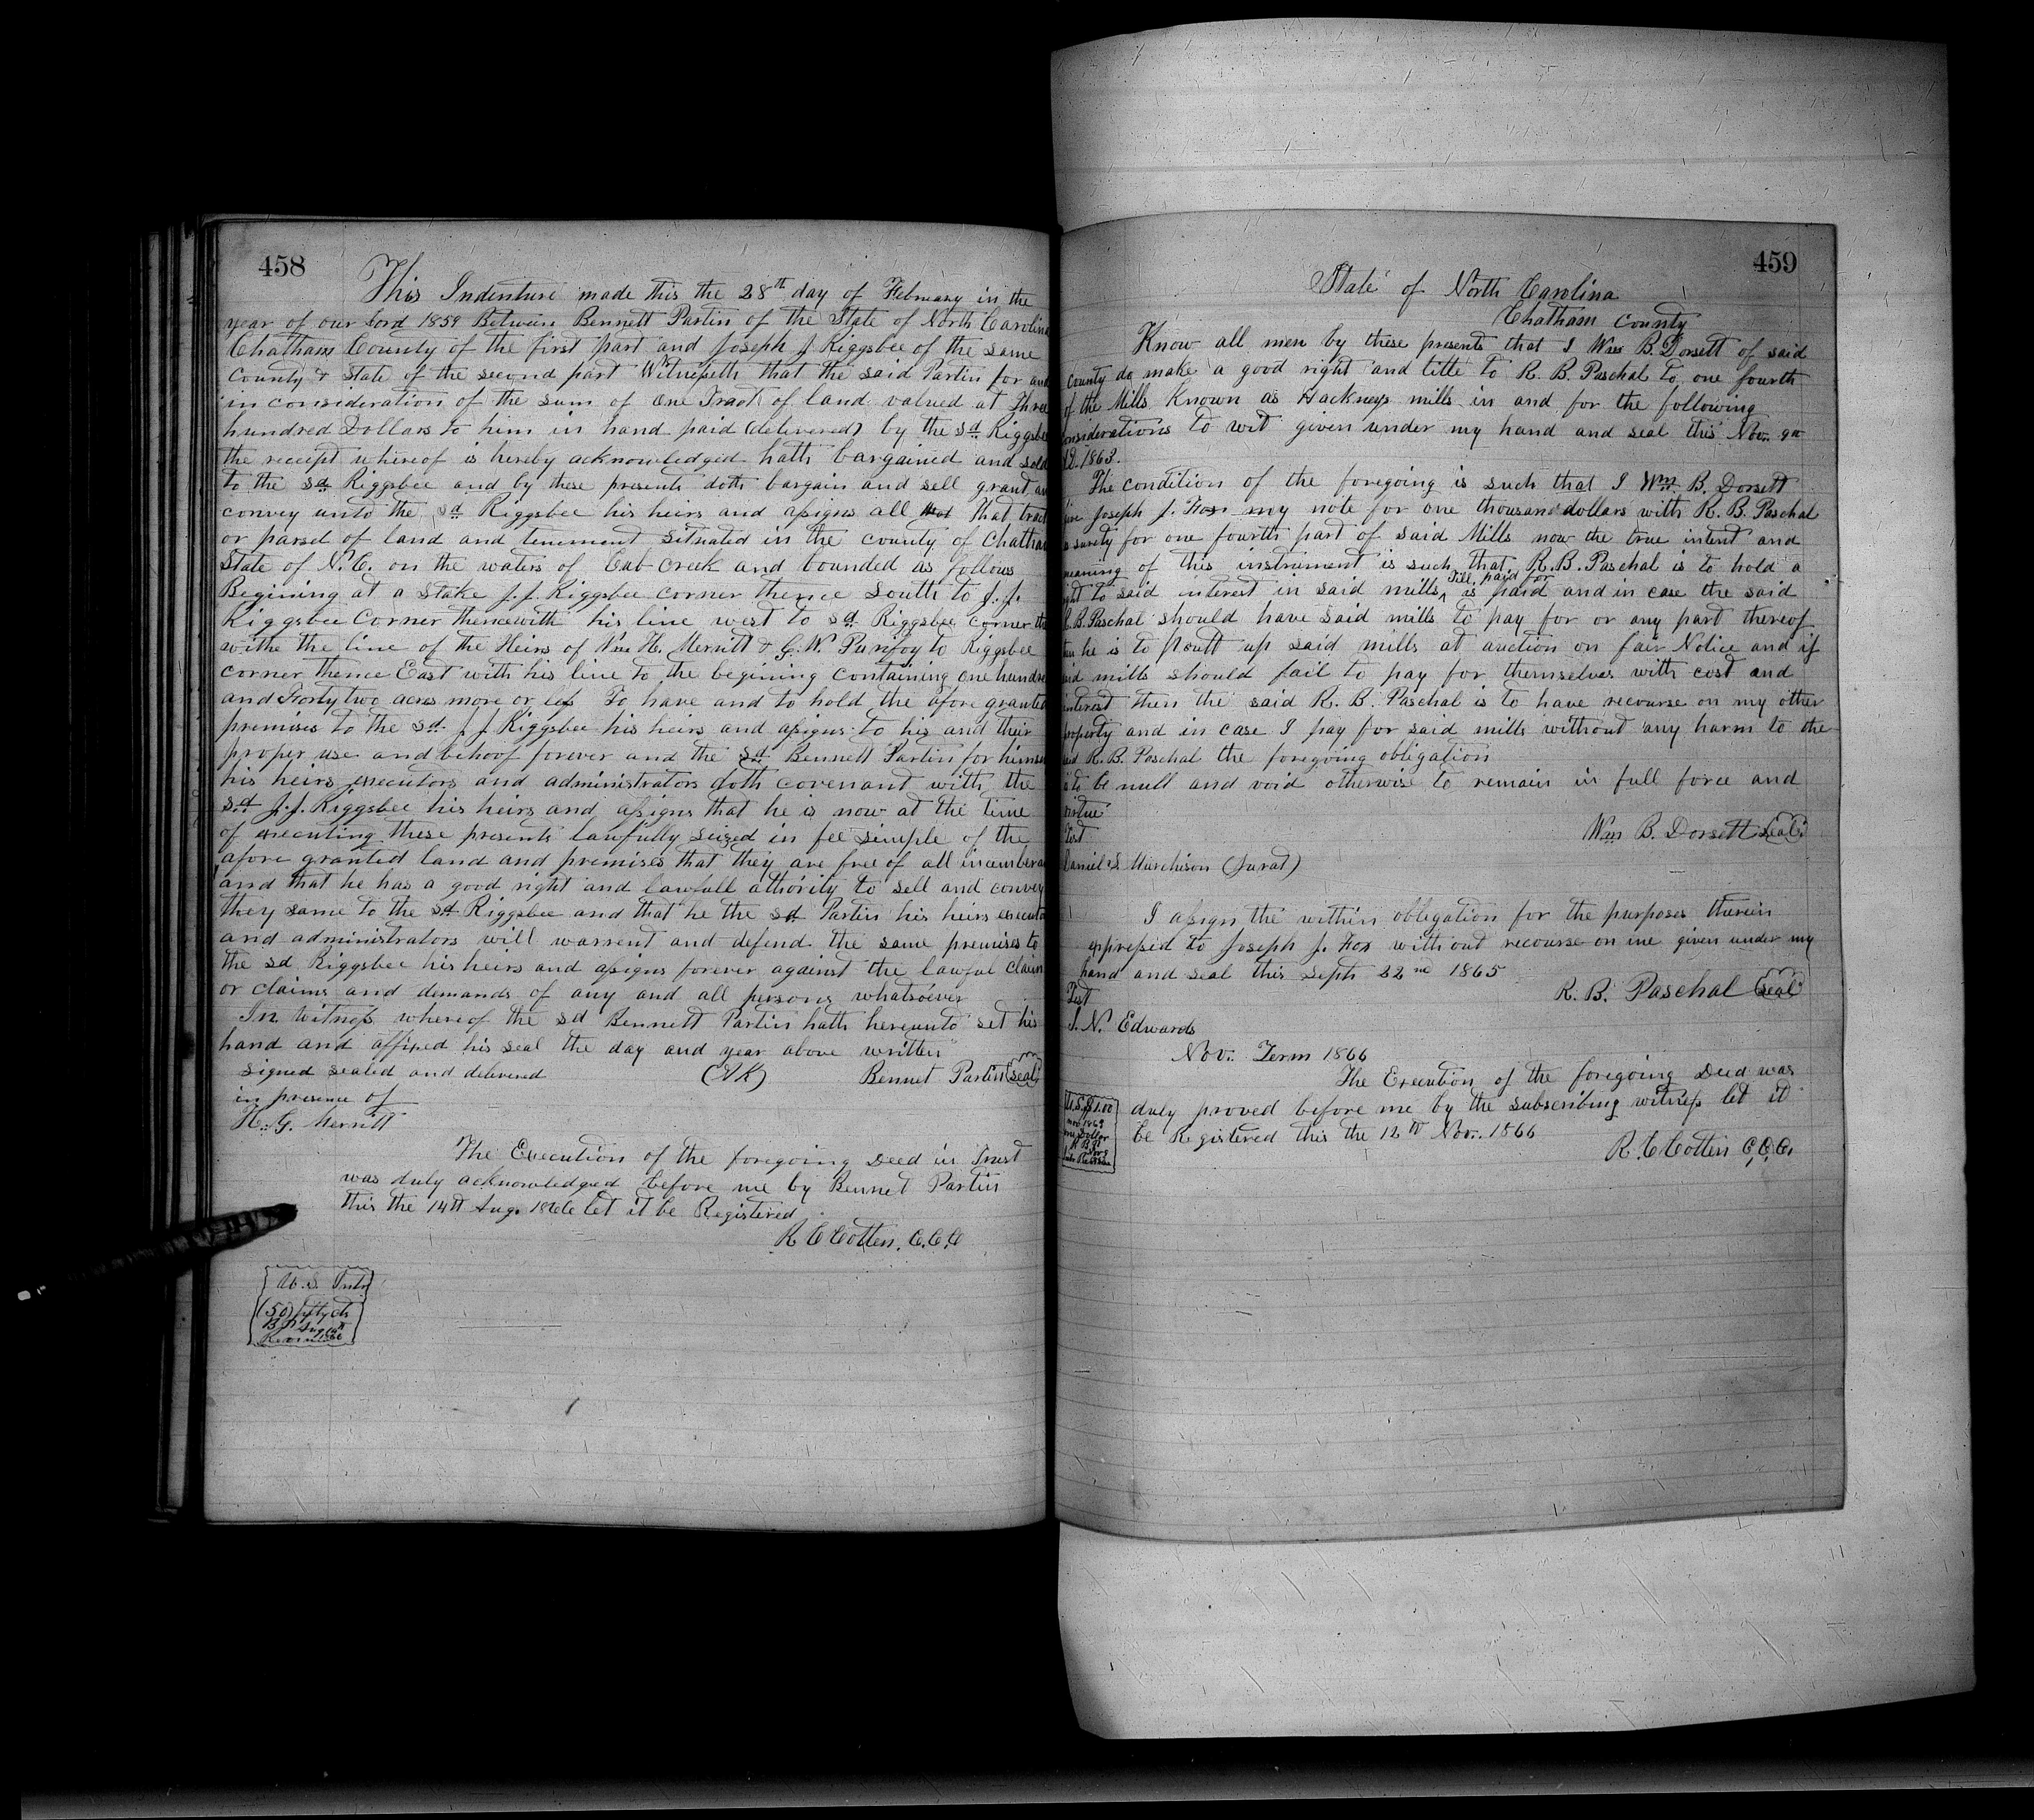 458
This Indenture made this the 28th day of February in the
year of our Lord 1859 Between Bennett Partin of the State of North Carolina
Chatham County of the first part and Joseph J Riggsbee of the same
County & State of the second part Witnesseth that the said Partin for and
in consideration of the sum of One Tract of land valued at Three
hundred Dollars to him in hand paid (delivered) by the sd Riggsbee
the receipt whereof is hereby acknowledged hath bargained and sold
to the sd Riggsbee and by these presents doth bargain and sell grant an
convey unto the sd Riggsbee his heirs and assigns all that tract
or parsel of land and tenement situated in the county of Chatham
State of N.C. on the waters of Cub Creek and bounded as follows
Begining at a Stake J.J. Riggsbee corner thence South to J.J.
Riggsbee Corner thence with his line west to sd Riggsbee corner th
withe the line of the Heirs of Wm H. Merritt & G.W. Purifoy to Riggsbee
corner thence East with his line to the begining containing one hundre
and Forty two acres more or less To have and to hold the afore granted
premises to the sd J J Riggsbee his heirs and assigns to his and their
proper use and behoof forever and the sd Bennett Partin for himse
his heirs executors and administrators doth covenant with the
sd J.J. Riggsbee his heirs and assigns that he is now at the time
of executing these presents lawfully seized in fee simple of the
afore granted land and premises that they are free of all incumbera
and that he has a good right and lawfull athority to sell and convey
they same to the sd Riggsbee and that he the sd Partin his heirs executo
and administrators will warrent and defend the same premises to
the sd Riggsbee his heirs and assigns forever against the lawful claim
or claims and demands of any and all persons whatsoever
In witness whereof the sd Bennett Partin hath hereunto set his
hand and affixed his seal the day and year above written
signed sealed and delivered Bennet Partin (seal)
in presence of
H. G. Merritt
The Execution of the foregoing Deed in Trust
was duly acknowledged before me by Bennet Partin
this the 14th Aug. 1866 let it be Registered
R C Cotten. C.C.C
U.S. Intr
(50) fifty cts
B P Aug 14th
Revenue
459
State of North Carolina
Chatham County
Know all men by these presents that I Wm B. Dorsett of said
County do make a good right and title to R. B. Paschal to one fourth
of the Mills Known as Hackneys mills in and for the following
onsiderations to wit given under my hand and seal this Nov. 9th
AD. 1863.
The condition of the foregoing is such that I Wm. B. Dorsett
give Joseph J. Fox my note for one thousand dollars with R. B. Paschal
as surety for one fourth part of said Mills now the true intent and
meaning of this instrument is such that R. B. Paschal is to hold a
ght to said interest in said mills Till paid for is paid and in case the said
R. B. Paschal should have said mills to pay for or any part thereof
he is to putt up said mills at auction on fair Notice and if
aid mills should fail to pay for themselves with cost and
interest then the said R. B. Paschal is to have recourse on my other
property and in case I pay for said mills without any harm to the
aid R. B. Paschal the foregoing obligation
is to be null and void otherwise to remain in full force and
virtue
Test Wm B. Dorsett (seal)
Daniel S Murchison (Jurat)
I assign the within obligation for the purposes therein
expressed to Joseph J. Fox without recourse on me given under my
hand and seal this Septr 22nd 1865
Test R. B. Paschal (seal)
S. N. Edwards
Nov. Term 1866
The Execution of the foregoing Deed was
duly proved before me by the subscribing witness let it
be Registered this the 12th Nov. 1866
R. C Cotten C.C.C.
U.S. $1.00
one Dollar